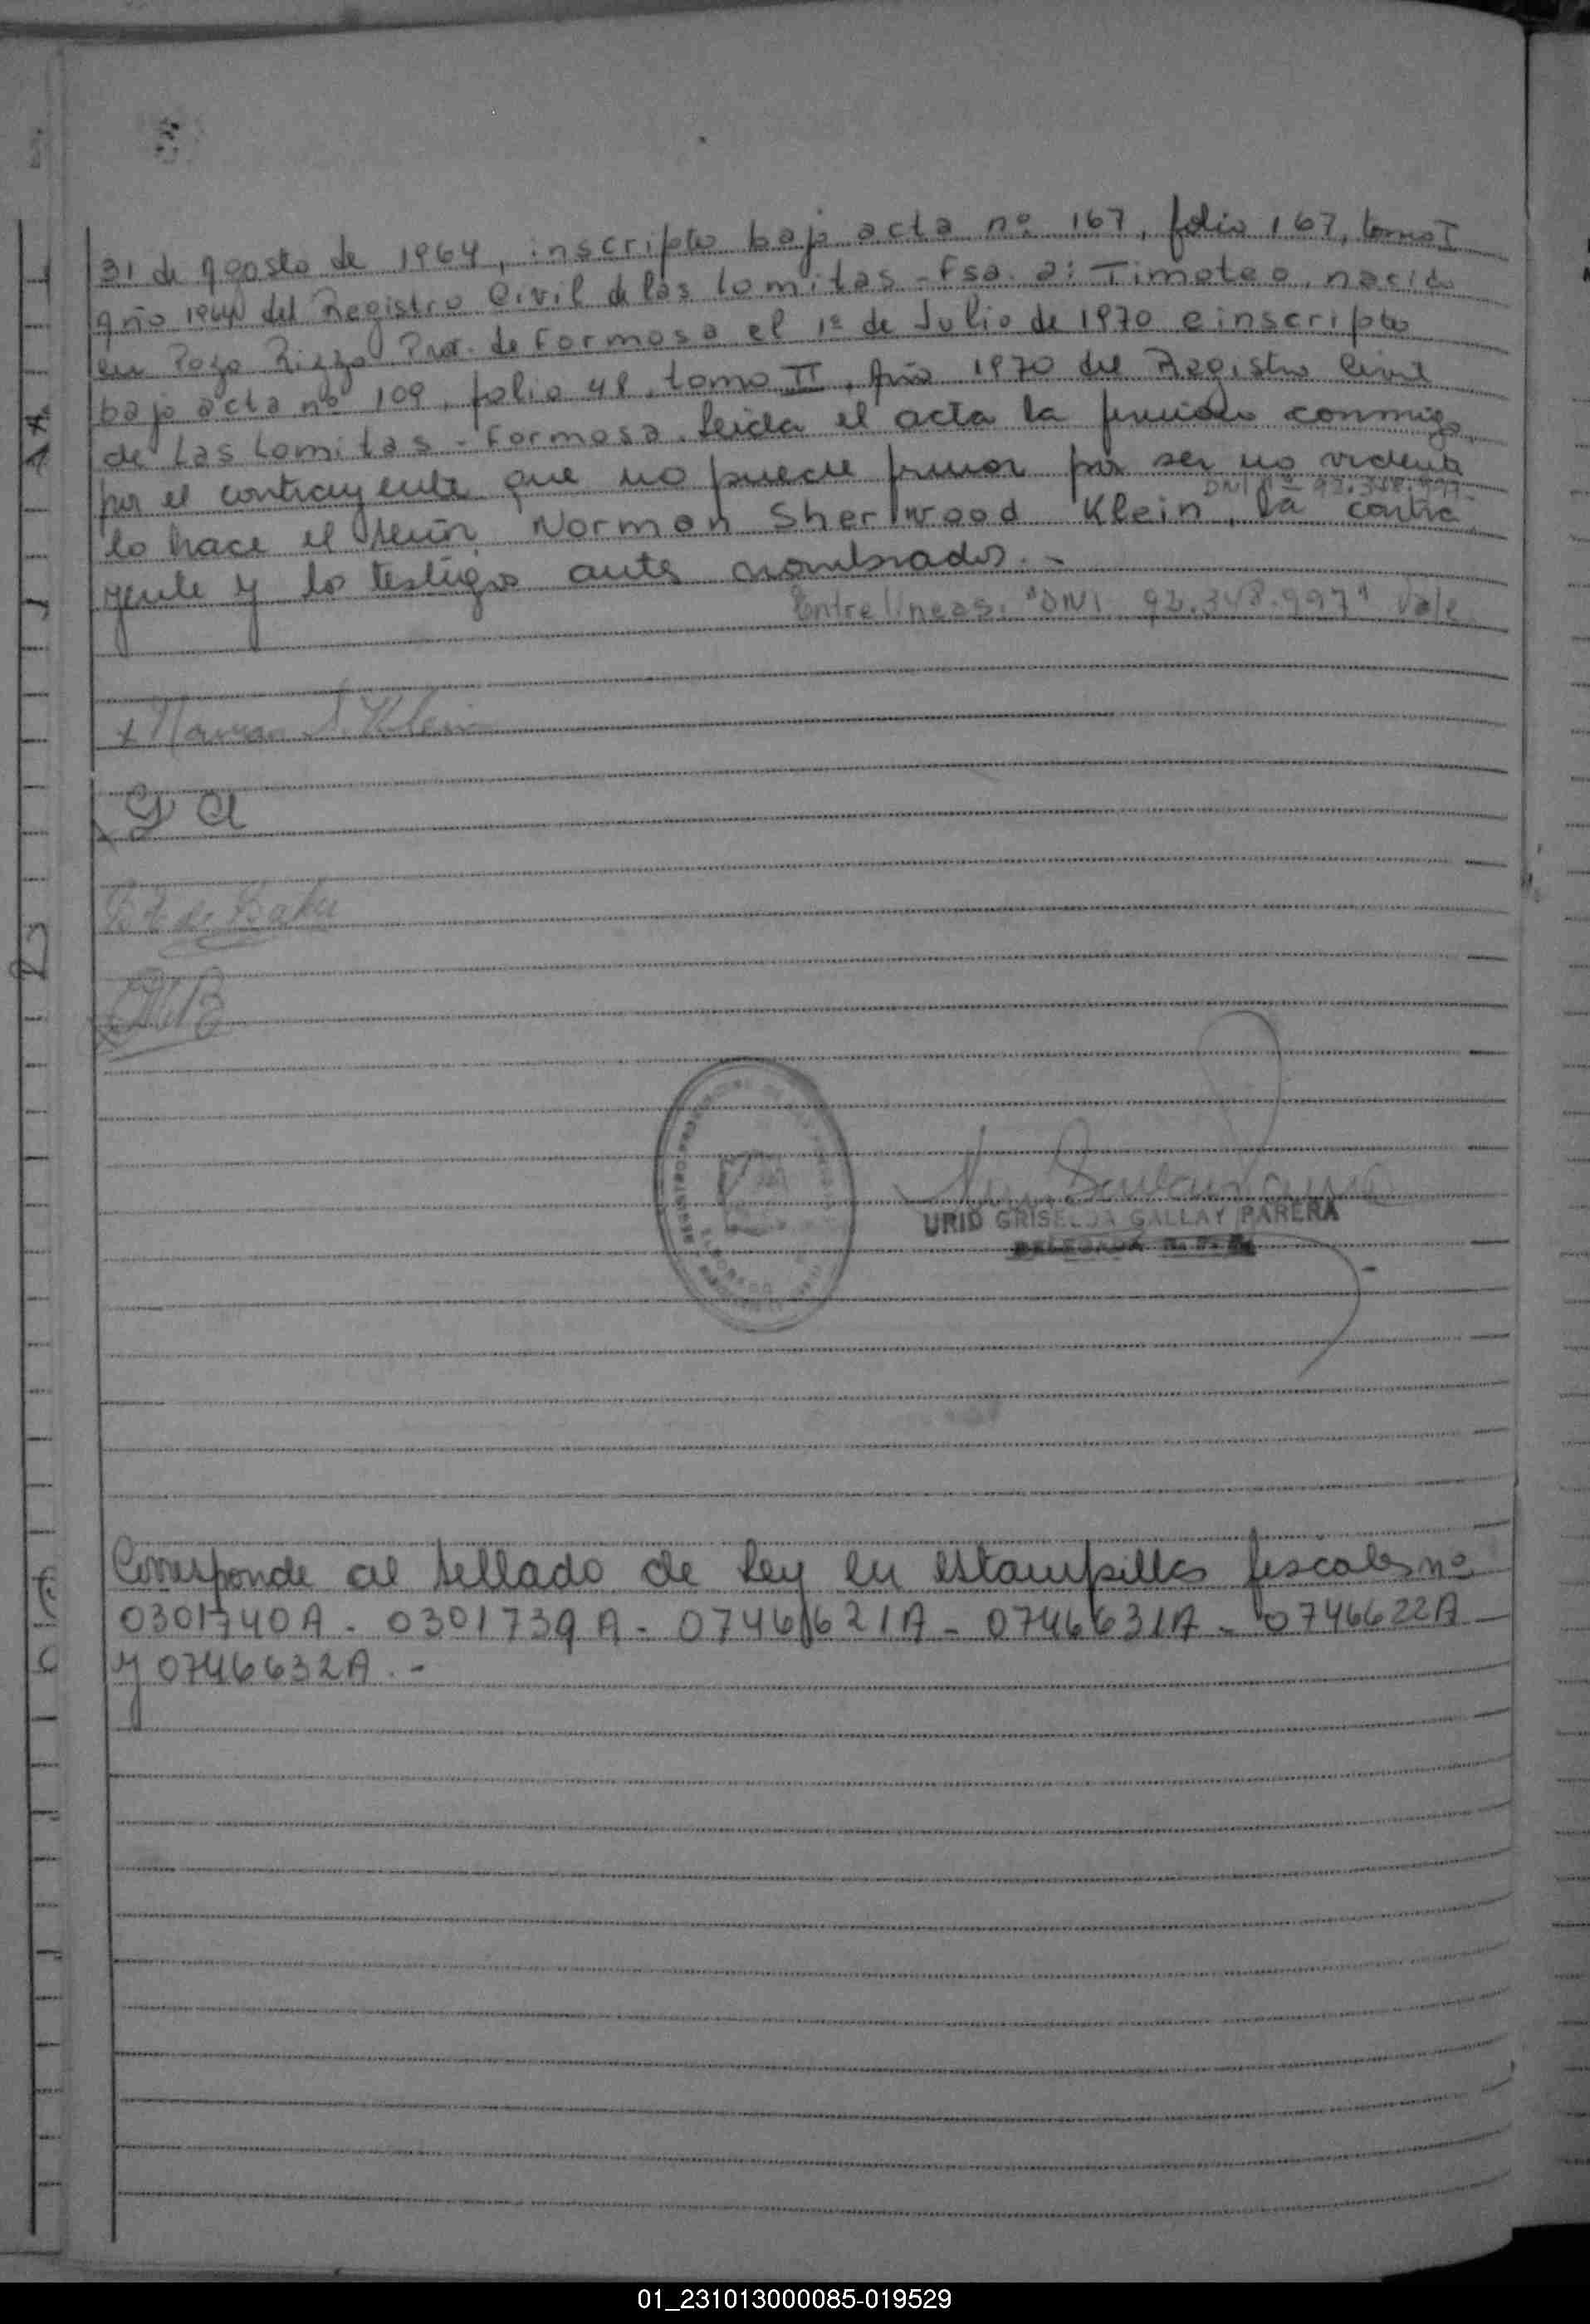 31 de Agosto de 1964, inscripto bajo acta nº 167, folio 167, tomo I
Año 1964 del Registro Civil de las Lomitas - Fsa. 2: Timoteo, nacido
en Pozo Rizzo Prov. de Formosa el 1º de Julio de 1970 e inscripto
bajo acta nº 109, folio 48, tomo II, Año 1970 del Registro Civil
de Las Lomitas - Formosa. Leida el acta la firman conmigo,
por el contrayente que no puede firmar por ser no vidente
DNI nº 92.348.997-
lo hace el señor Norman Sherwood Klein, la contra
yente y los testigos antes nombrados. -
Entre líneas: "DNI 92.348.997" Vale
x Norman S. Klein
URID GRISELDA GALLAY PARERA
DELEGADA
Corresponde al sellado de Ley en estampillas fiscales nº
0301740A - 0301739A - 0746621A - 0746631A - 0746622A
y 0746632A. -
01_231013000085-019529